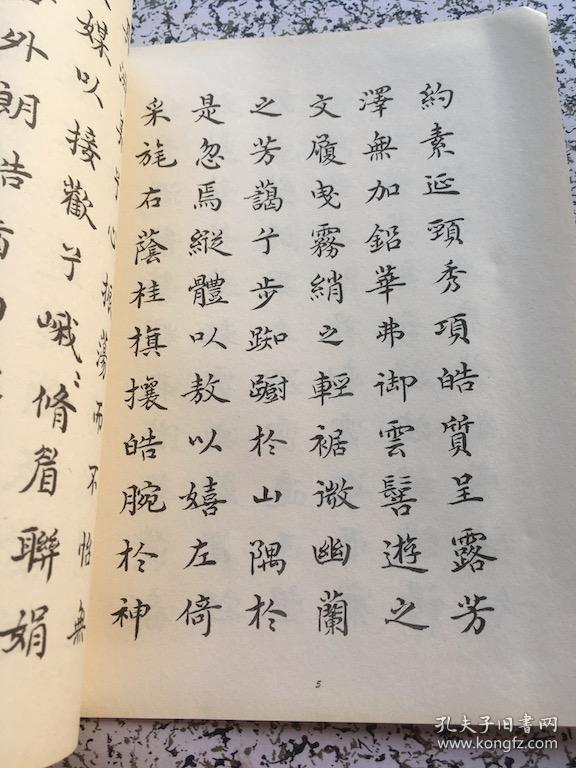 兮心振蕩而不怡無
媒以接歡兮峨〻脩眉聯娟
外朗皓齒
約素延頸秀項皓質呈露芳
澤無加鉛華弗御雲髻遊之
文履曳霧綃之輕裾微幽蘭
之芳藹兮步踟躕於山隅於
是忽焉縱體以敖以嬉左倚
采旄右蔭桂旗攘皓腕於神
5
孔夫子旧书网
www.kongfz.com